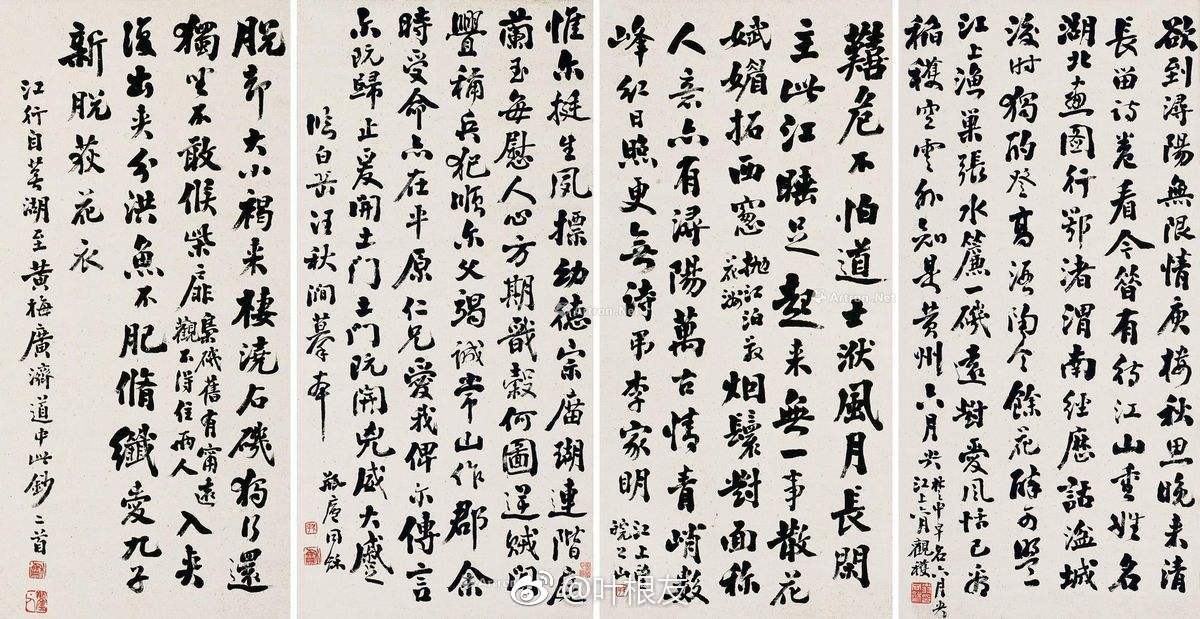 欲到潯陽無限情庾樓秋思晚来清
長留詩卷看今昔有待江山重姓名
湖北畫圖行鄂渚渭南經歷話湓城
时獨酌登高酒陶令餘花醉
江上漁巢張水簾一磯遠對愛风恬已看
稻穫空雲外知是黃州六月尖
江上六月觀穫
囏危不怕道士洑風月長閑
主此江睡足起来無一事散花
斌媚拓西窓拋江泊散花洲烟鬟對面称
人意亦有潯陽萬古情青峭數
峰紅日照更無詩弔李家明
江上望皖公山
惟尔挺生夙標幼德宗廟瑚璉階庭
蘭玉每慰人心方期戩穀何圖逆賊閒
釁稱兵犯順尔父竭誠常山作郡余
時受命亦在平原仁兄愛我俾尔傳言
尔既歸止爰開土門土門既開兇威大蹙
臨白岳汪秋澗摹本
瓶廬同龢
脫却大小褐来棲澆石磯獨行還
獨坐不敢候柴扉梟磯舊有甯遠觀不得住兩人入夾
復出夾分洪魚不肥脩纖愛九子
新脫荻花衣
江行自蕪湖至黃梅廣濟道中此鈔二首
@叶根友